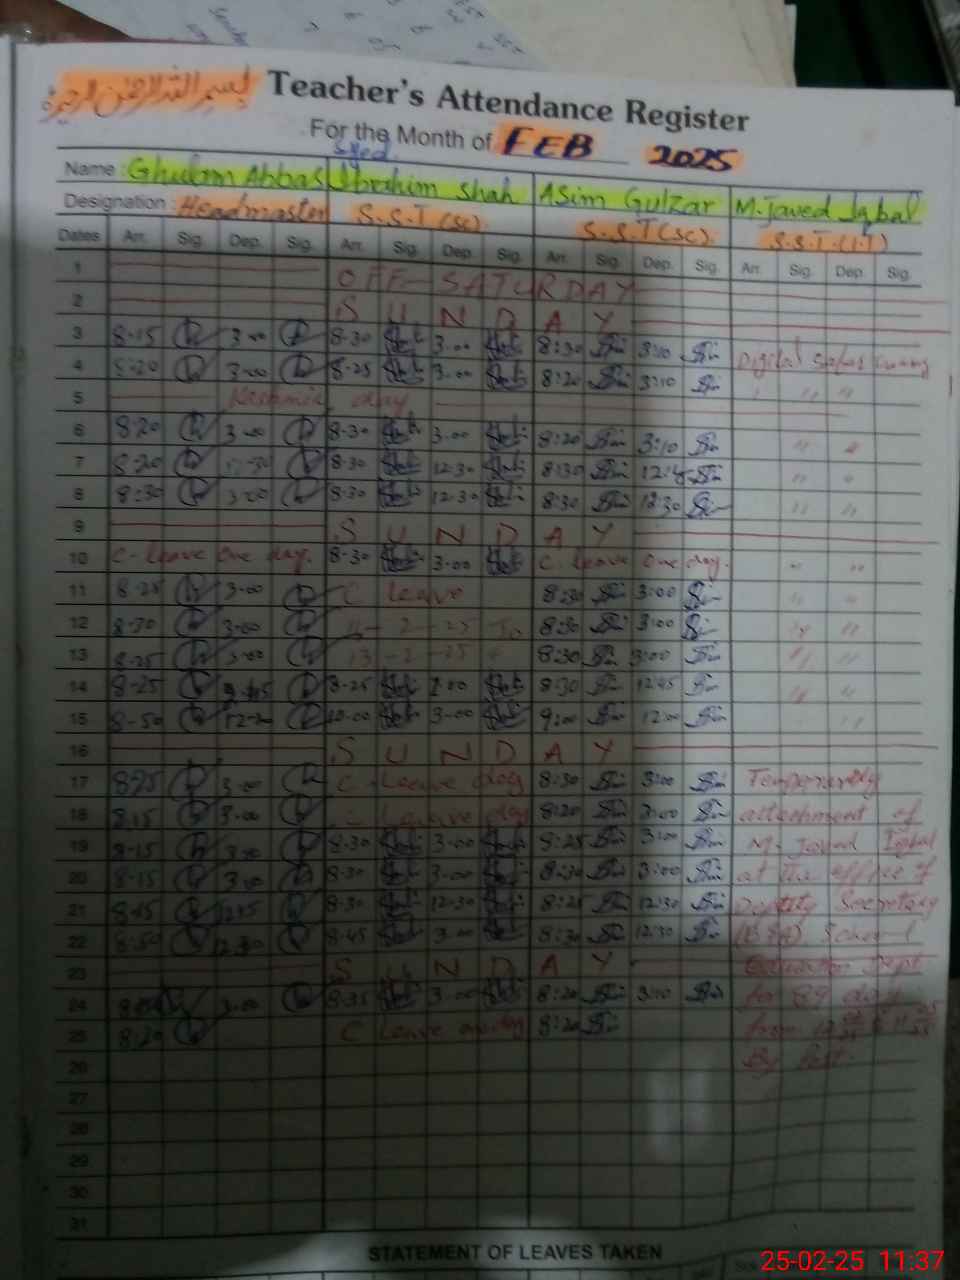 بسم اللہ الرحمن الرحیم
Teacher's Attendance Register
For the Month of FEB 2025
Name : Ghulam Abbas Syed Ibrahim Shah Asim Gulzar M. Javed Iqbal
Designation : Headmaster S.S.T (SC) S.S.T (SC) S.S.T. (I.T)
Dates Arr. Sig. Dep. Sig. Arr. Sig. Dep. Sig. Arr. Sig. Dep. Sig. Arr. Sig. Dep. Sig.
1 OFF - SATURDAY
2 S U N D A Y
3 8-15 3-00 8-30 3-00 8:30 3:10
4 8-20 3-00 8-25 3-00 8:20 3:10 Digital
5 Kashmir day " "
6 8-20 3-00 8-30 3-00 8:20 3:10 " "
7 8-20 8-30 12-30 8:30 " "
8 8-30 3-00 8-30 12-30 8:30 12:30 " "
9 S U N D A Y
10 C- leave one day. 8-30 3-00 C. leave one day. " "
11 8-25 3-00 C leave 8:30 3:00 " "
12 8-20 3-00 8:30 3:00 " "
13 8-25 3-00 8:30 3:00 " "
14 8-25 8-25 8:30 12:45 " "
15 8-50 10-00 3-00 9:00 12:00 "
16 S U N D A Y
17 8-25 3-00 C - Leave day 8:30 3:00 Temporarily
18 8.15 3-00 Leave day 8:20 3:00 attachment of
19 8-15 3-00 8-30 3-00 8:25 3:00 M. Javed Iqbal
20 8-15 3-00 8-30 3-00 8:30 3:00 at the office of
21 8-45 8-30 12-30 8:25 12:30 Deputy Secretary
22 8-50 12-30 8-45 3-00 8:30 12:30 School
23 S U N D A Y Education Dept
24 3-00 8-35 3-00 8:20 3:10 for 89 days
25 8-20 C leave one day 8:20 from
26 By
27
28
29
30
31
STATEMENT OF LEAVES TAKEN
25-02-25 11:37